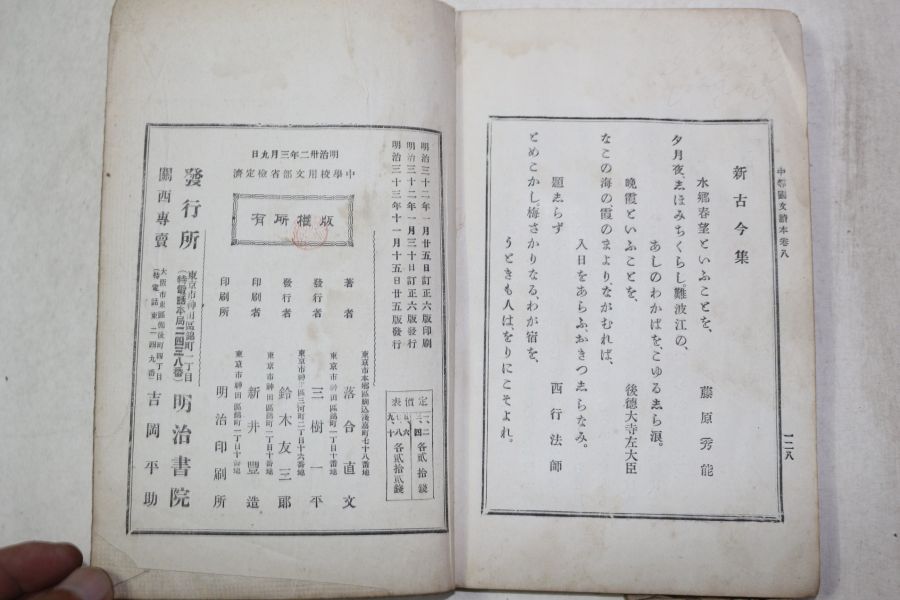 中等國文讀本卷八
一二八
新古今集
水鄕春望といふことを、
藤原秀能
夕月夜、志ほみちくらし。難波江の、
あしのわかばを、こゆる志ら浪。
晩霞といふことを、
後德大寺左大臣
なこの海の、霞のまより、ながむれば、
入日をあらふ、おきつ志らなみ。
題志らず
西行法師
とめこかし、梅さかりなる、わが宿を、
うときも人は、をりにこそよれ。
明治三十二年一月廿五日訂正六版印刷
明治三十二年一月三十日訂正六版發行
明治三十三年十一月十五日廿五版發行
定價表
一、二
三、四
各貳拾錢
五、六
七、八
九、十
各貳拾貳錢
明治卅二年三月九日
中學校用文部省檢定濟
版權所有
著者
東京市本鄕區駒込淺嘉町七十八番地
落合直文
發行者
東京市神田區錦町一丁目十番地
三樹一平
發行者
東京市神田區三河町一丁目十六番地
鈴木友三郞
印刷者
東京市神田區錦町一丁目十番地
新井豐造
印刷所
東京市神田區錦町一丁目十番地
明治印刷所
發行所
東京市神田區錦町一丁目
(特電話本局二四三八番)
明治書院
關西專賣
大阪市東區備後町四丁目
(特電話東二四九番)
吉岡平助